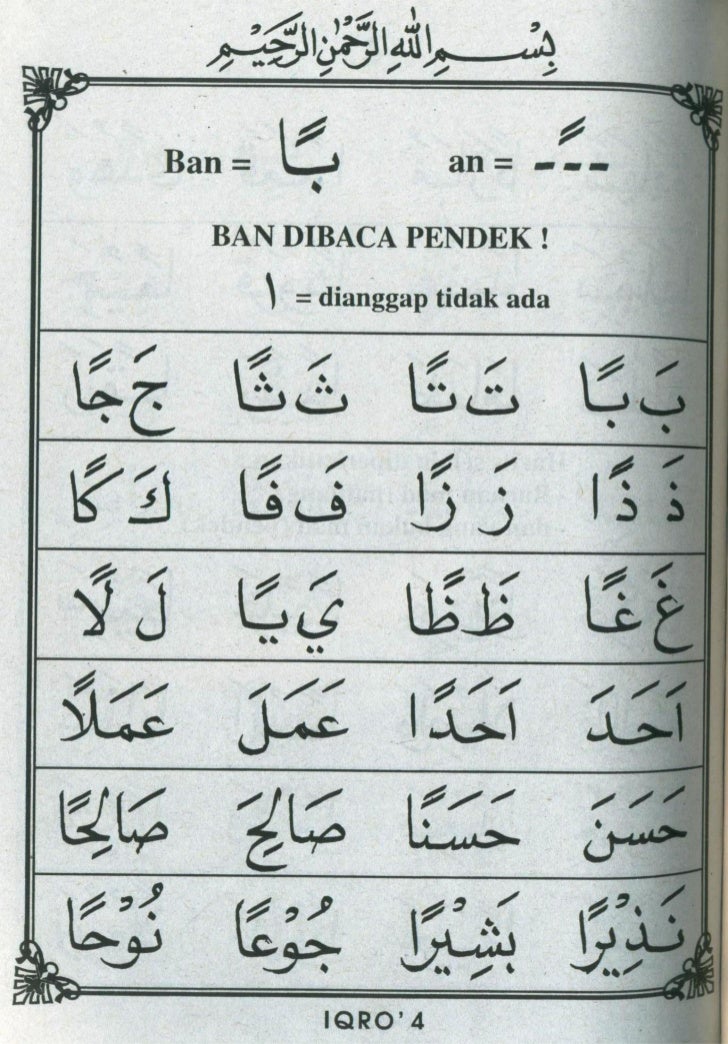 بِسْمِ اللهِ الرَّحْمٰنِ الرَّحِيْمِ
Ban = بًا an = ـًـ
BAN DIBACA PENDEK !
ا = dianggap tidak ada
بَ بًا تَ تًا ثَ ثًا جَ جًا
ذَ ذًا رَ زًا فَ فًا كَ كًا
غَ غًا ظَ ظًا يَ يًا لَ لًا
اَحَدَ اَحَدًا عَمَلَ عَمَلًا
حَسَنَ حَسَنًا صَالِحَ صَالِحًا
نَذِيْرًا بَشِيْرًا جُوْعًا نُوْحًا
IQRO' 4